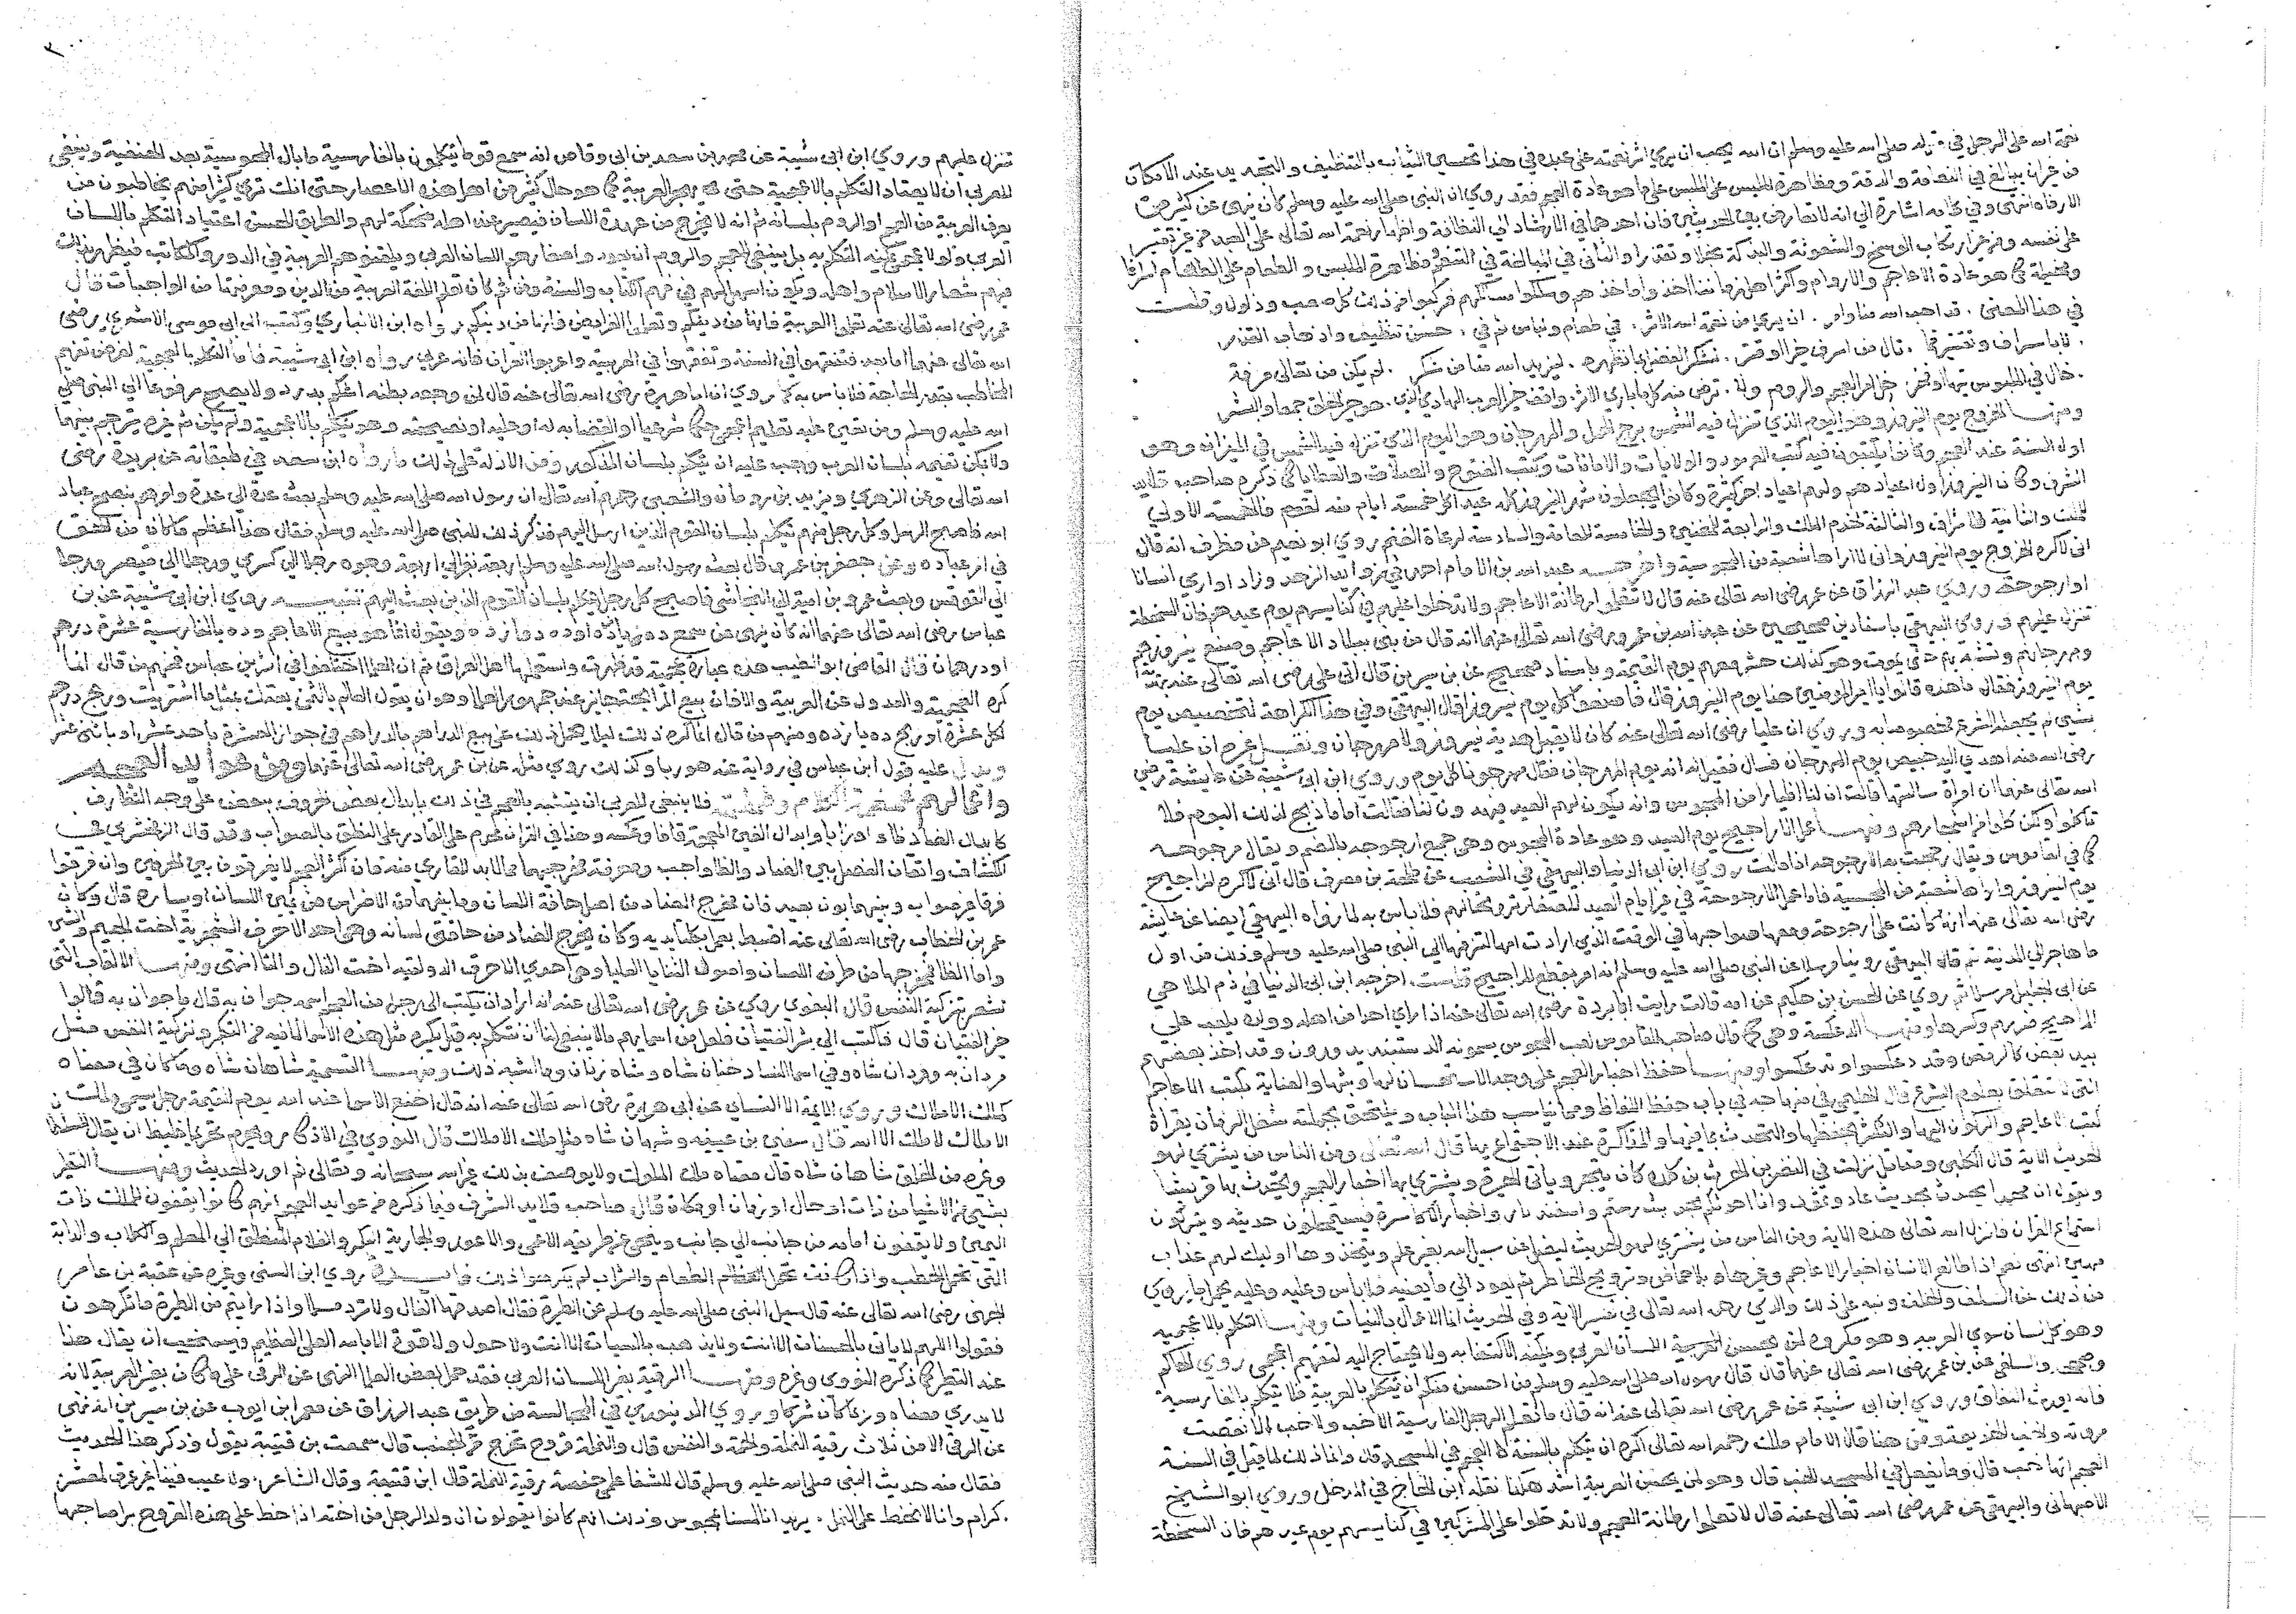 نعمة الله على الرجل في قوله صلى الله عليه وسلم ان الله يحب ان يرى اثر نعمته على عبده في هذا تحسين الثياب بالتنظيف والتجديد عند الامكان
من غير ان يبالغ في النعامة والدقة ومظاهرة الملبس على الملبس على ما هو عادة العجم فقد روي ان النبي صلى الله عليه وسلم كان ينهى عن كثير من
الارفاه انتهى وفي كلامه اشارة الى انه لا تعارض بين الحديثين فان احدهما في الارشاد الى النظافة واظهار نعمة الله تعالى على العبد من غير تقتير
على نفسه ومن غير ارتكاب الوسخ والشعوثة والبذاذة بخلا وتقذرا والثاني في المبالغة في التنعم ومظاهرة الملبس والطعام على الطعام اسرافا
ومخيلة كما هو عادة الاعاجم والاروام واكثر اهل زماننا اخذوا ماخذهم وسلكوا مسالكهم فركبوا من ذلك كل صعب وذلول وقلت
في هذا المعنى . قد احب الله منا وامر . ان يرى من نعمة الله الاثر . في طعام ولباس ثم في . حسن تنظيف واذهاب القذر
. لا باسراف وتقتير كما . قال من اسرف خيرا او قتر . نشكر الفضل بما نظهره . ليزيد الله منا من شكر . لم يكن من تعالى مرفة
ومنها الخروج يوم النيروز وهو اليوم الذي تنزل فيه الشمس برج الحمل والمهرجان وهو اليوم الذي تنزل فيه الشمس في الميزان وهو
اول السنة عند العجم وكانوا يكتبون فيه كتب العهود والولايات والامانات وكتب الفتوح والصلات والعطايا كما ذكره صاحب قلايد
الشرف وكان النيروز اول اعيادهم ولهم اعياد اخر كثيرة وكانوا يجعلون شهر النيروز كله عيدا كل خمسة ايام منه لقوم فالخمسة الاولى
للملك والثانية للاشراف والثالثة لخدم الملك والرابعة للمغنين والخامسة للعامة والسادسة لرعاة الغنم روى ابو نعيم عن مطرف انه قال
اني لاكره الخروج يوم النيروز واني لاراها شعبة من المجوسية واخرجه عبد الله بن الامام احمد في زوائد الزهد وزاد او ارى انسانا
او ارجوحة وروى عبد الرزاق عن عمر رضي الله تعالى عنه قال لا تعلموا رطانة الاعاجم ولا تدخلوا عليهم في كنايسهم يوم عيدهم فان السخطة
تنزل عليهم وروى البيهقي باسنادين صحيحين عن عبد الله بن عمرو رضي الله تعالى عنهما انه قال من بنى ببلاد الاعاجم وصنع نيروزهم
ومهرجانهم وتشبه بهم حتى يموت وهو كذلك حشر معهم يوم القيمة وباسناد صحيح عن بن سيرين قال اتي علي رضي الله تعالى عنه بهدية
يوم النيروز فقال ما هذه قالوا يا امير المؤمنين هذا يوم النيروز قال فاصنعوا كل يوم نيروزا قال البيهقي وفي هذا الكراهة لتخصيص يوم
بشيء لم يجعله الشرع مخصوصا به وروي ان عليا رضي الله تعالى عنه كان لا يقبل هدية نيروز ولا مهرجان ونقل غيره ان عليا
رضي الله عنه اهدي اليه خبيص يوم المهرجان فسال فقيل له انه يوم المهرجان فقال مهرجونا كل يوم وروى ابن ابي شيبة عن عايشة رضي
الله تعالى عنها ان امراة سالتها قالت ان لنا اظيارا من المجوس وانه يكون لهم العيد فيهدون لنا فقالت اما ما ذبح لذلك اليوم فلا
تاكلوا ولكن كلوا من اشجارهم ومنها عمل الاراجيح يوم العيد وهو عادة المجوس وهي جمع ارجوحة بالضم ويقال مرجوحة
كما في القاموس ويقال رجحت به الارجوحة اذا مالت روى ابن ابي الدنيا والبيهقي في الشعب عن طلحة بن مصرف قال اني لاكره المراجيح
يوم النيروز واراها شعبة من المجوسية فاما عمل الارجوحة في غير ايام العيد للصغار فلا باس به لما رواه البيهقي ايضا عن عايشة
رضي الله تعالى عنها انها كانت على ارجوحة ومعها صواحبها في الوقت الذي ارادت امها لتزفها الى النبي صلى الله عليه وسلم وذلك من اول
ما هاجر الى المدينة ثم قال البيهقي روينا مرسلا عن النبي صلى الله عليه وسلم انه امر بقطع المراجيح قلت اخرجه ابن ابي الدنيا في ذم الملاهي
عن ابي الخليل مرسلا ثم روي عن الحسن بن حكيم عن امه قالت رايت ابا بردة رضي الله تعالى عنه اذا راى احدا من اهله وولده يلعب على
المراجيح ضربهم وكسرها ومنها الدعكسة وهي كما قال صاحب القاموس لعب المجوس يسمونه الدستبند يدورون وقد اخذ بعضهم
بيد بعض كالرقص وقد دعكسوا وتدعكسوا ومنها حفظ اخبار العجم على وجه الاستحسان لها وشهاد العناية بكتب الاعاجم
التي لا تتعلق بعلوم الشرع قال الحليمي في منهاجه في باب حفظ اللسان ومما يناسب هذا الباب ويلتحق بجملته شغل الزمان بقراة
كتب الاعاجم والركون اليها والتكثر بحفظها والتحدث بما فيها والمذاكرة عند الاجتماع بها قال الله تعالى ومن الناس من يشتري لهو
الحديث الاية قال الكلبي ومقاتل نزلت في النضر بن الحرث بن كلدة كان يتجر وياتي الحيرة ويشتري بها اخبار العجم ويحدث بها قريشا
ويقول ان محمدا يحدثكم بحديث عاد وثمود وانا احدثكم بحديث رستم واسفنديار واخبار الاكاسرة فيستملحون حديثه ويتركون
استماع القران فانزل الله تعالى هذه الاية ومن الناس من يشتري لهو الحديث ليضل عن سبيل الله بغير علم ويتخذها هزوا اوليك لهم عذاب
مهين انتهى نعم اذا طالع الانسان اخبار الاعاجم وغيرها وترويح الخاطر ثم يعود الى ما يعنيه فلا باس وعليه يحمل ما يروى
من ذلك عن السلف والخلف ونبه على ذلك والدي رحمه الله تعالى في تفسير الاية وفي الحديث انما الاعمال بالنيات ومنها التكلم بالاعجمية
وهو كل لسان سوى العربية وهو مكروه لمن يحسن العربية ولا يحتاج اليه لتفهيم اعجمي روى الحاكم
وصححه والسلفي عن بن عمر رضي الله تعالى عنهما قال قال رسول الله صلى الله عليه وسلم من احسن منكم ان يتكلم بالعربية فلا يتكلم بالفارسية
فانه يورث النفاق وروى ابن ابي شيبة عن عمر رضي الله تعالى عنه انه قال ما تعلم الرجل الفارسية الا خب ولا خب الا نقصت
مروته ومن هنا قال الامام ملك رحمه الله تعالى اكره ان يتكلم بالسنة العجم في المسجد قال وانما ذلك لما قيل في السنة
العجم انها خب قال وما يفعل في المسجد الخب قال وهو لمن يحسن العربية اشد هكذا نقله ابن الحاج في المدخل وروى ابو الشيخ
الاصبهاني والبيهقي عن عمر رضي الله تعالى عنه قال لا تعلموا رطانة العجم ولا تدخلوا على المشركين في كنايسهم يوم عيدهم فان السخطة
٢٠٠
تنزل عليهم وروى ابن ابي شيبة عن محمد بن سعد بن ابي وقاص انه سمع قوما يتكلمون بالفارسية فقال ما بال المجوسية بعد الحنيفية وينبغي
للعربي ان لا يعتاد التكلم بالاعجمية حتى يهجر العربية كما هو حال كثير من اهل هذه الاعصار حتى انك ترى كثيرا منهم يخاطبون من
يعرف العربية من العجم او الروم بلسانه ثم انه لا يخرج من عهدة اللسان فيصير عند اهله ضحكة لهم والطريق الحسن اعتياد التكلم باللسان
فيهم شعار الاسلام واهله ويكون اسهل لهم في فهم الكتاب والسنة ومن ثم كان تعلم اللغة العربية من الدين ومعرفتها من الواجبات قال
عمر رضي الله تعالى عنه تعلموا العربية فانها من دينكم وتعلموا الفرايض فانها من دينكم رواه ابن الانباري وكتب الى ابي موسى الاشعري رضي
الله تعالى عنهما اما بعد فتفقهوا في السنة وتفقهوا في العربية واعربوا القران فانه عربي رواه ابن ابي شيبة فاما التكلم بالعجمية لغرض تفهيم
المخاطب بقدر الحاجة فلا باس به كما روي ان ابا هريرة رضي الله تعالى عنه قال لمن وجعه بطنه اشكم بدرد ولا يصح مرفوعا الى النبي صلى
الله عليه وسلم ومن تعين عليه تعليم اعجمي حكما شرعيا او القضا به له او عليه او نصيحته وهو يتكلم بالاعجمية ولم يكن ثم غيره يترجم بينهما
ولا يمكن تفهيمه بلسان العرب وجب عليه ان يتكلم بلسان المذكور ومن الادلة على ذلك ما رواه ابن سعد في طبقاته عن بريدة رضي
الله تعالى وعن الزهري ويزيد بن رومان والشعبي رحمهم الله تعالى ان رسول الله صلى الله عليه وسلم بعث عدة الى عدة وامرهم بنصح عباد
الله فاصبح الرسل وكل رجل منهم يتكلم بلسان القوم الذين ارسل اليهم فذكر ذلك للنبي صلى الله عليه وسلم فقال هذا اعظم ما كان من الحق
في امر عباده وعن جعفر بن عمرو قال بعث رسول الله صلى الله عليه وسلم اربعة نفر الى اربعة وجوه رجلا الى كسرى ورجلا الى قيصر ورجلا
الى المقوقس وبعث عمرو بن امية الى النجاشي فاصبح كل رجل يتكلم بلسان القوم الذين بعث اليهم تنبيه روى ابن ابي شيبة عن بن
عباس رضي الله تعالى عنهما انه كان ينهى عن بيع ده يازده اوده دوازده ويقول انما هو بيع الاعاجم وده بالفارسية عشرة درهم
او درهمان قال القاضي ابو الطيب هذه عبارة عجمية قد ظهرت واستعملها اهل العراق ثم ان العلما اختلفوا في اثر ابن عباس فمنهم من قال انما
كره العجمية والعدول عن العربية والا فان بيع المرابحة جايز عند جمهور العلما وهو ان يقول العالم بالثمن بعتك بمثل ما اشتريت وربح درهم
لكل عشرة او بربح ده يازده ومنهم من قال انما كره ذلك ليلا يحمل ذلك على بيع الدراهم بالدراهم في جواز العشرة باحد عشر او باثني عشر
ويدل عليه قول ابن عباس في رواية عنه هو ربا وكذلك روي مثله عن بن عمر رضي الله تعالى عنهما ومن عوايد العجم
فلا ينبغي للعربي ان يتشبه بالعجم في ذلك بابدال بعض الحروف ببعض على وجه التظارف
كابدال الضاد ظا وهذا في القران محرم على القادر على النطق بالصواب وقد قال الزمخشري في
الكشاف واتقان الفصل بين الضاد والظا واجب ومعرفة مخرجيهما مما لا بد للقاري منه فان اكثر العجم لا يفرقون بين الحرفين وان فرقوا
فرقا غير صواب وبينهما بون بعيد فان مخرج الضاد من اصل حافة اللسان وما يليها من الاضراس من يمين اللسان او يساره قال وكان
عمر بن الخطاب رضي الله تعالى عنه اضبط يعمل بكلتا يديه وكان يخرج الضاد من جانبي لسانه وهي احد الاحرف الشجرية اخت الجيم والشين
واما الظا فمخرجها من طرف اللسان واصول الثنايا العليا وهي احدى الاحرف الذولقية اخت الذال والثا انتهى ومنها الالقاب التي
تشعر بتزكية النفس قال البغوي روي عن عمر رضي الله تعالى عنه انه اراد ان يكتب الى رجل من العجم اسمه جوان به قال ما جوان به قالوا
خير الفتيان قال فاكتب الى شر الفتيان فلعل من اسمايهم ما لا ينبغي لنا ان نتكلم به قيل كره مثل هذه الاسما لما فيه من التكبر وتزكية النفس مثل
مردان به ومردان شاه وفي اسما النسا دختان شاه وشاه زنان وما اشبه ذلك ومنها التسمية شاهان شاه وما كان في معناه
كملك الاملاك وروى الايمة الا النساي عن ابي هريرة رضي الله تعالى عنه انه قال اخنع الاسما عند الله يوم القيمة رجل يسمى ملك
الاملاك لا ملك الا الله قال سفين بن عيينة وشاهان شاه مثل ملك الاملاك قال النووي في الاذكار ويحرم تحريما غليظا ان يقال للسلطان
وغيره من الخلق شاهان شاه قال معناه ملك الملوك ولا يوصف بذلك غير الله سبحانه وتعالى ثم اورد الحديث ومنها التطير
بشيء من الاشيا من ذات او حال او زمان او مكان قال صاحب قلايد الشرف فيما ذكره من عوايد العجم انهم كانوا يقفون للملك ذات
اليمين ولا يقفون امامه من جانب الى جانب ويتنحى عن طريقه الاعمى والاعور والجارية البكر والغلام المنطلق الى المعلم والكلاب والدابة
التي تحمل الحطب واذا كانت تحمل الطعام والشراب لم يكرهوا ذلك فايدة روى ابن السني وغيره عن عقبة بن عامر
الجهني رضي الله تعالى عنه قال سيل النبي صلى الله عليه وسلم عن الطيرة فقال اصدقها الفال ولا ترد مسلما واذا رايتم من الطيرة ما تكرهون
فقولوا اللهم لا ياتي بالحسنات الا انت ولا يذهب بالسيات الا انت ولا حول ولا قوة الا بالله العلي العظيم ويستحب ان يقال هذا
عند التطير كما ذكره النووي وغيره ومنها الرقية بغير اللسان العربي فقد حمل بعض العلما النهي عن الرقى على ما كان بغير العربية لانه
لا يدري معناه وربما كان شركا وروى الدينوري في المجالسة من طريق عبد الرزاق عن معمر ابن ايوب عن بن سيرين انه نهى
عن الرقى الا من ثلاث رقية النملة والحمة والنفس قال والنملة قروح تخرج في الجنب قال سمعت بن قتيبة يقول وذكر هذا الحديث
فقال منه حديث النبي صلى الله عليه وسلم قال للشفا علمي حفصة رقية النملة قال ابن قتيبة وقال الشاعر . ولا عيب فينا غير عرق لمعشر
. كرام وانا لا نخط على النمل . يريد انا لسنا بمجوس وذلك انهم كانوا يقولون ان ولد الرجل من اخته اذا خط على هذه القروح برا صاحبها